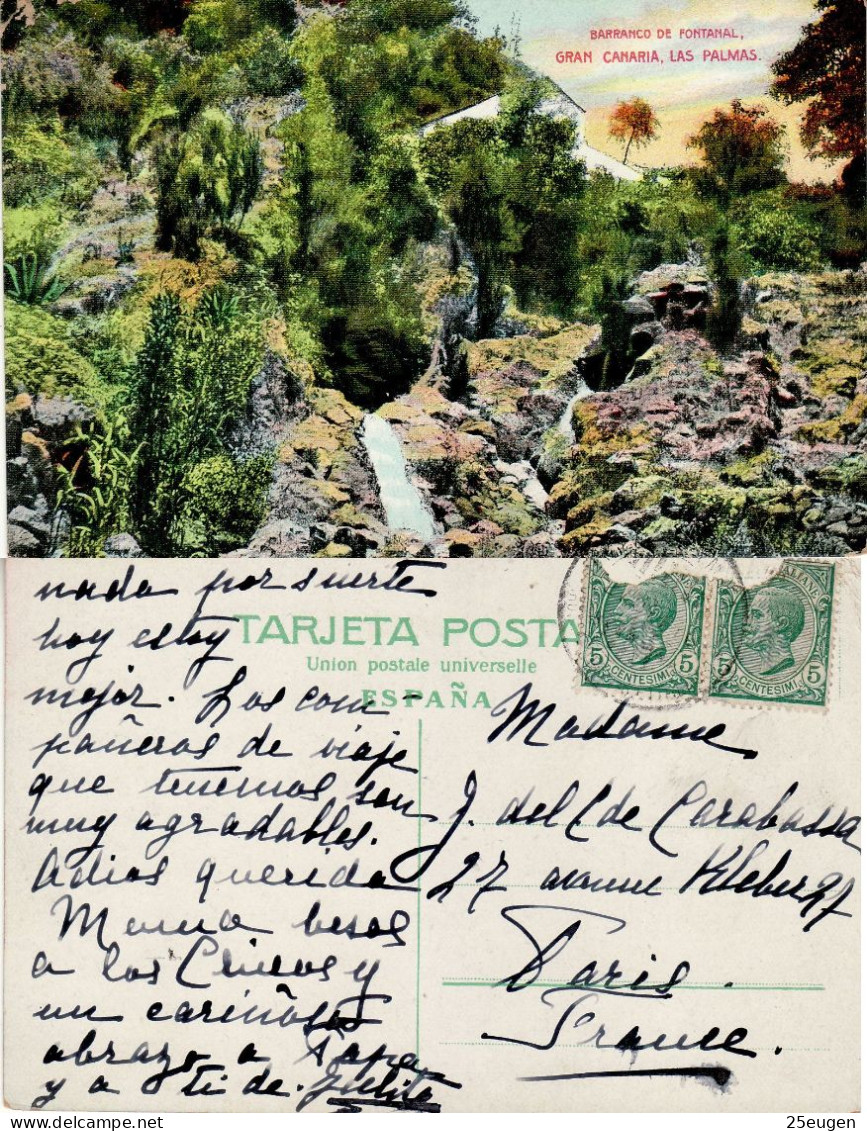 BARRANCO DE FONTANAL,
GRAN CANARIA, LAS PALMAS.
nada por suerte
hoy estoy
mejor. Los com-
pañeros de viaje
que tenemos son
muy agradables.
Adios querida
Mama besos
a los Chicos y
un cariñoso
abrazo a Papa
y a ti de. Julita
TARJETA POSTA
Union postale universelle
ESPAÑA
5 CENTESIMI 5
5 CENTESIMI 5
Madame
J. del C de Carabassa
27 avenue Kleber 27
Paris.
France.
delcampe.net
25eugen